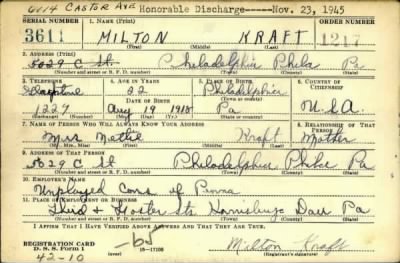 6114 CASTOR AVE Honorable Discharge-----Nov. 23, 1945
SERIAL NUMBER 1. NAME (Print) ORDER NUMBER
3611 MILTON KRAFT 1217
(First) (Middle) (Last)
2. ADDRESS (Print)
5029 C St. Philadelphia Phila Pa
(Number and street or R. F. D. number) (Town) (County) (State)
3. TELEPHONE 4. AGE IN YEARS 5. PLACE OF BIRTH 6. COUNTRY OF CITIZENSHIP
22 Philadelphia
DATE OF BIRTH (Town or county)
1227 Aug 19 1918 Pa USA
(Exchange) (No.) (Mo.) (Day) (Yr.) (State or country)
7. NAME OF PERSON WHO WILL ALWAYS KNOW YOUR ADDRESS 8. RELATIONSHIP OF THAT PERSON
Mrs. Nettie Kraft Mother
(Mr., Mrs., Miss) (First) (Middle) (Last)
9. ADDRESS OF THAT PERSON
5029 C St Philadelphia Phila Pa
(Number and street or R. F. D. number) (Town) (County) (State)
10. EMPLOYER'S NAME
Unployed Cons of Penna
11. PLACE OF EMPLOYMENT OR BUSINESS
Third + Forster Sts Harrisburg Dau Pa
(Number and street or R. F. D. number) (Town) (County) (State)
I AFFIRM THAT I HAVE VERIFIED ABOVE ANSWERS AND THAT THEY ARE TRUE.
REGISTRATION CARD
D. S. S. Form 1 16-17105 Milton Kraft
42-10 (Registrant's signature)